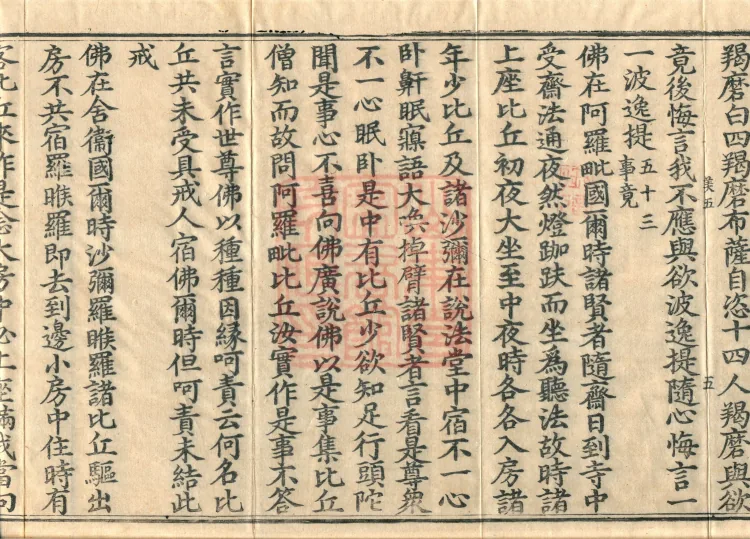 羯磨白四羯磨布薩自恣十四人羯磨與欲
竟後悔言我不應與欲波逸提隨心悔言一
一波逸提五十三事竟
佛在阿羅毗國爾時諸賢者隨齋日到寺中
受齋法通夜然燈跏趺而坐為聽法故時諸
上座比丘初夜大坐至中夜時各各入房諸
年少比丘及諸沙彌在說法堂中宿不一心
卧鼾眠寱語大喚掉臂諸賢者言看是尊衆
不一心眠卧是中有比丘少欲知足行頭陀
聞是事心不喜向佛廣說佛以是事集比丘
僧知而故問阿羅毗比丘汝實作是事不答
言實作世尊佛以種種因緣呵責云何名比
丘共未受具戒人宿佛爾時但呵責未結此
戒
佛在舍衞國爾時沙彌羅睺羅諸比丘驅出
房不共宿羅睺羅即去到邊小房中住時有
客比丘來作是念大房中必上座滿我當向